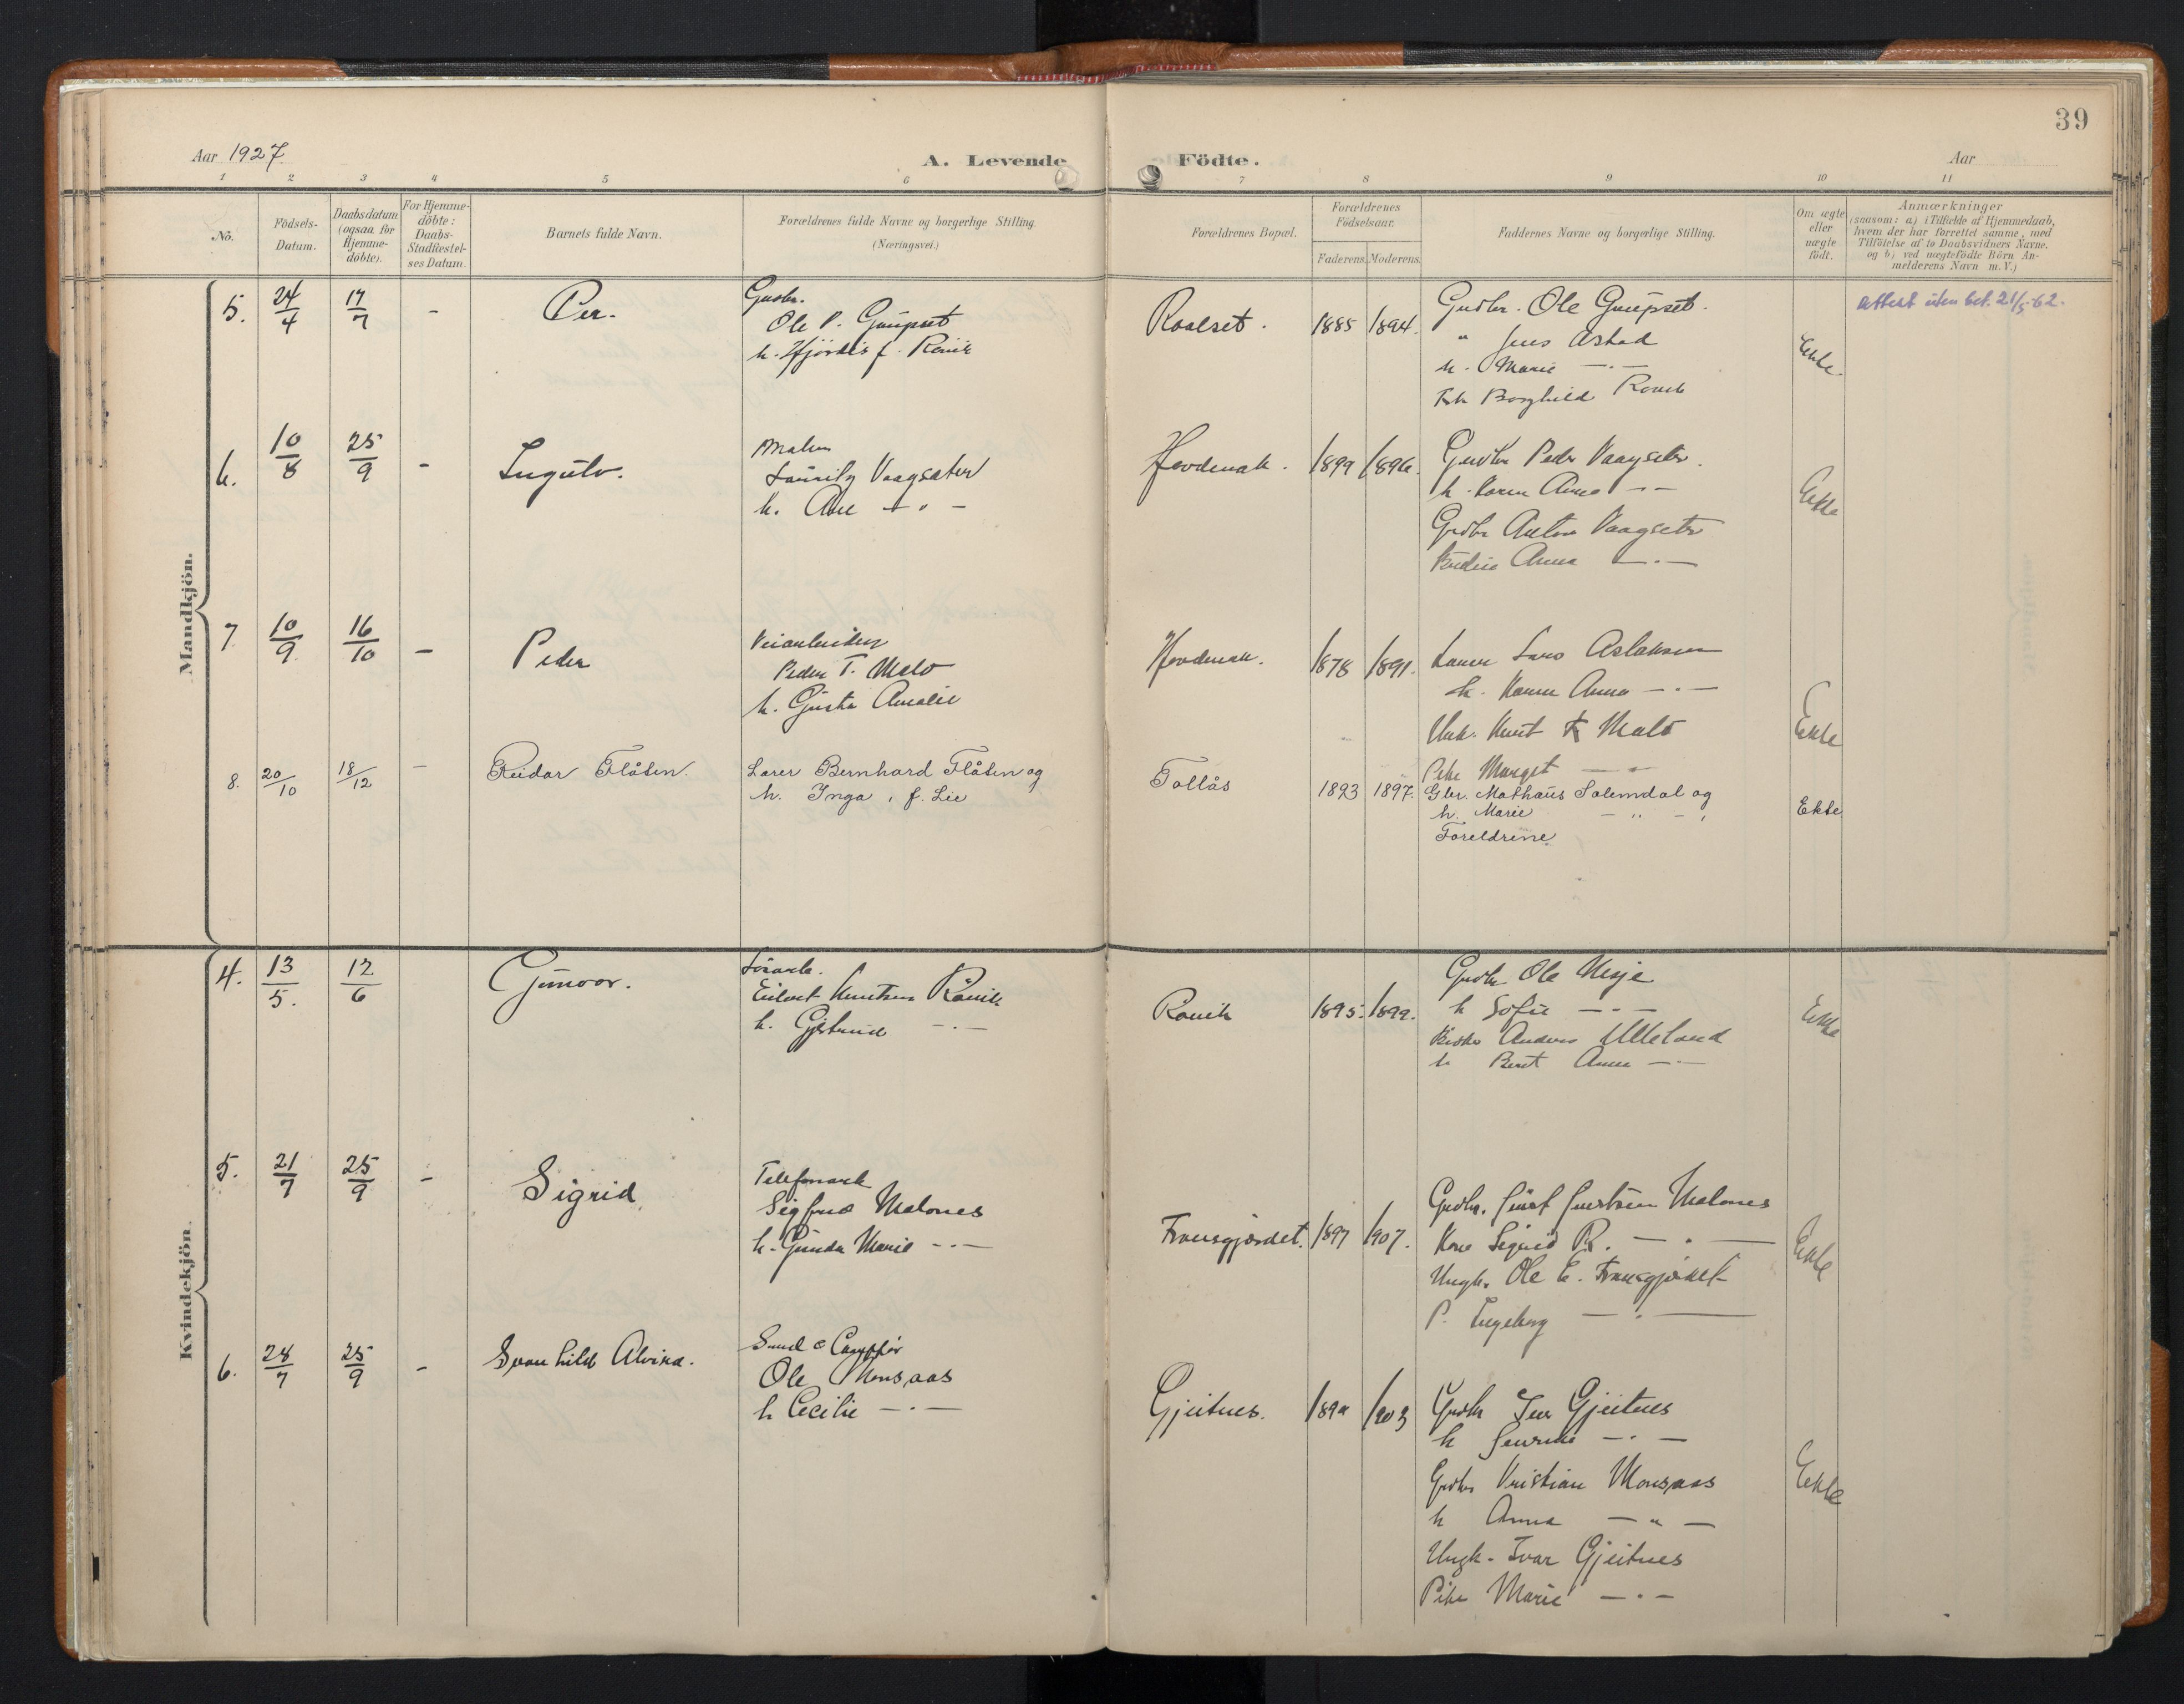 39
Aar 1927
A. Levende Födte.
Aar
1 2 3 4 5 6 7 8 9 10 11
No.
Födsels-Datum.
Daabsdatum (ogsaa for Hjemme-döbte).
For Hjemme-döbte: Daabs-Stadfæstel-ses Datum.
Barnets fulde Navn.
Forældrenes fulde Navne og borgerlige Stilling.
(Næringsvei.)
Forældrenes Bopæl.
Forældrenes Födselsaar.
Faderens. Moderens.
Faddernes Navne og borgerlige Stilling.
Om ægte eller uægte födt.
Anmærkninger
(saasom: a) i Tilfælde af Hjemmedaab,
hvem der har forrettet samme, med
Tilföielse af to Daabsvidners Navne.
og b) ved uægtefödte Börn An-
melderens Navn m. V.)
Mandkjön.
5. 24/4 17/7 - Per.
Gusbr.
Ole P. Gaupset
h. Hjördis f. Rånik
Roalset. 1885 1894.
Gudbr. Ole Gaupset.
" Jens Astad
h. Marie -"-
Borghild
Ekte.
attest uten bet. 21/5-62.
6. 10/8 25/9 - Ingulv.
Maler
Lauritz Vaagsæter
h. Ane - " -
Hovdenak. 1899 1896.
Gudbr Peder Vaagseter.
h. Karen Anna - -
Gudbr Anton Vaagseter
Anna -"-
Ekte
7 10/9. 16/10 - Peder
Veiarbeider
Peder T. Malo
h. Gusta Amalie
Hovdenak. 1878 1891.
Lars Aslaksen
h. Karen Anna -"-
Ungk. Knut Malo
Pike Margit -"-
Ekte
8. 20/10 18/12 - Reidar Flåten.
Lærer Bernhard Flåten og
h. Inga, f. Lie
Tollås 1893 1897.
Gbr. Mathæus Solemdal og
h. Marie - " -
Foreldrene.
Ekte
Kvindekjön.
4. 13/5. 12/6 Gunvor.
Eilert Knutsen Rånik
h. Gjertrud -"-
Ranik 1895. 1899.
Gudbr Ole Nesje
h Sofie -"-
Anders Ulleland
h Berit Anna -"-
Ekte
5. 21/7 25/9 - Sigrid
Telefonarb
Sigfred Malones
h. Gunda Marie -"-
Fransgjerdet. 1897 1907.
Gudbr. Malones
Kone Sigrid R. -"-
Ungk. Ole E. Fransgjerdet
P. Ingeborg -"-
Ekte
6. 28/7 25/9 - Svanhild Alvina.
Ole Monsaas
h Cecilie -"-
Gjeitnes. 1903
Gudbr Iver Gjeitnes
h -"-
Gudbr Kristian Monsaas
h Anna -"-
Ungk. Ivar Gjeitnes
Pike Marie -"-
Ekte